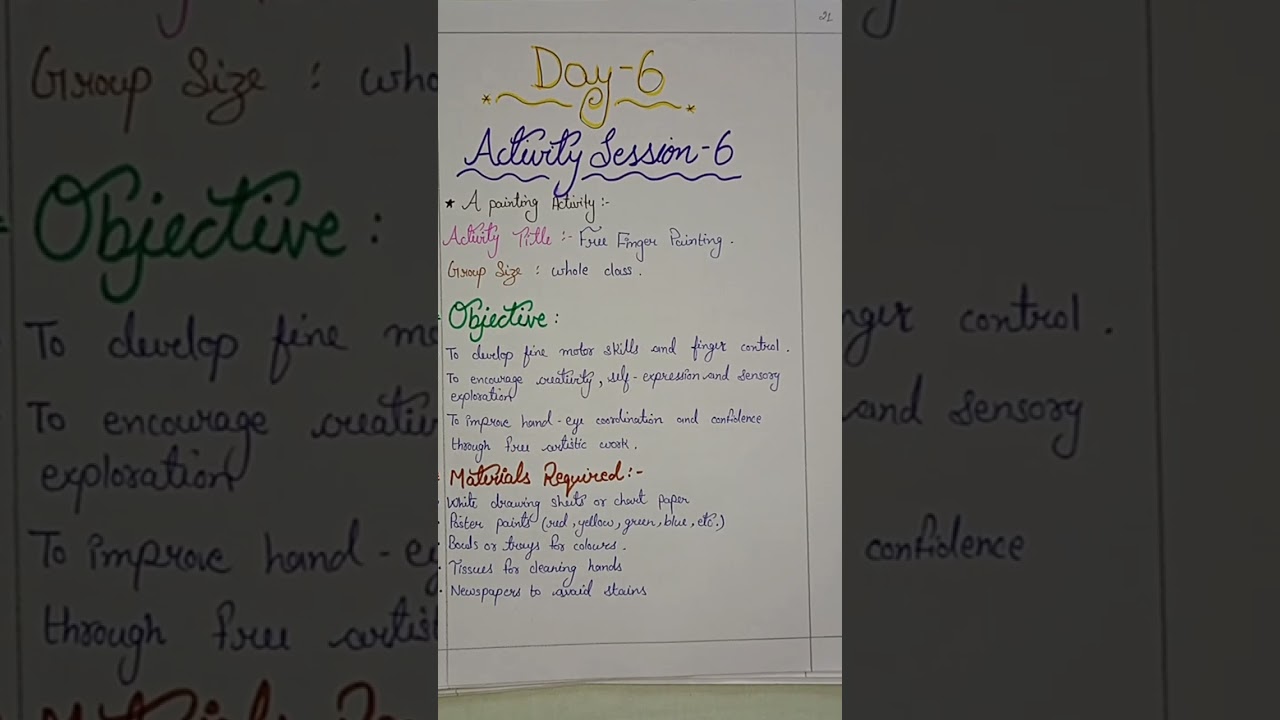 21
Day-6
Activity Session-6
★ A painting Activity :-
Activity Title :- Free Finger Painting.
Group Size : whole class.
Objective :
To develop fine motor skills and finger control.
To encourage creativity, self-expression and sensory
exploration
To improve hand-eye coordination and confidence
through free artistic work.
Materials Required :-
White drawing sheets or chart paper
Poster paints (red, yellow, green, blue, etc.)
Bowls or trays for colours.
Tissues for cleaning hands
Newspapers to avoid stains